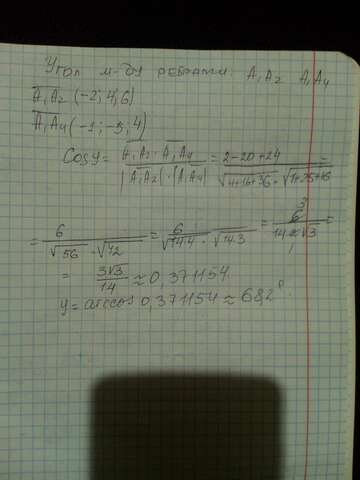 Угол м-ду ребрами A₁A₂ A₁A₄
A₁A₂ (-2; 4; 6)
A₁A₄ (-1; -5; 4)
Cosy = A₁A₂ · A₁A₄ / |A₁A₂| · |A₁A₄| = 2-20+24 / √4+16+36 · √1+25+16 =
= 6 / √56 · √42 = 6 / √14·4 · √14·3 = 6 3 / 14·2√3 1 =
= 3√3 / 14 ≈ 0,371154
y = arccos 0,371154 ≈ 68,2°